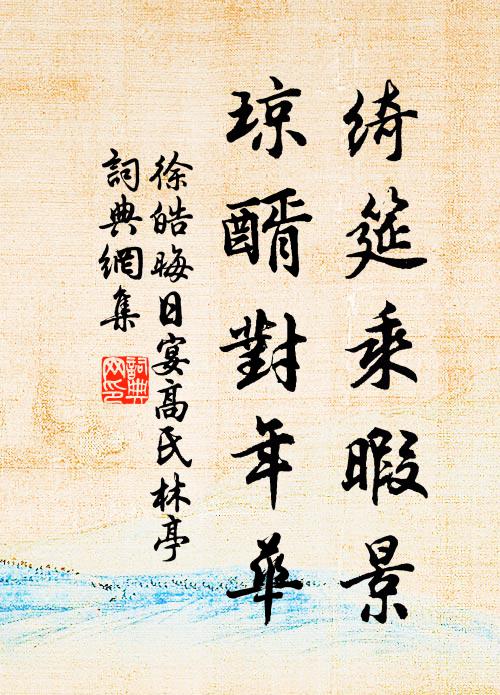 綺筵乘暇景
琼醑對年華
徐皓晦日宴高氏林亭
詞典網集
詞典
网印